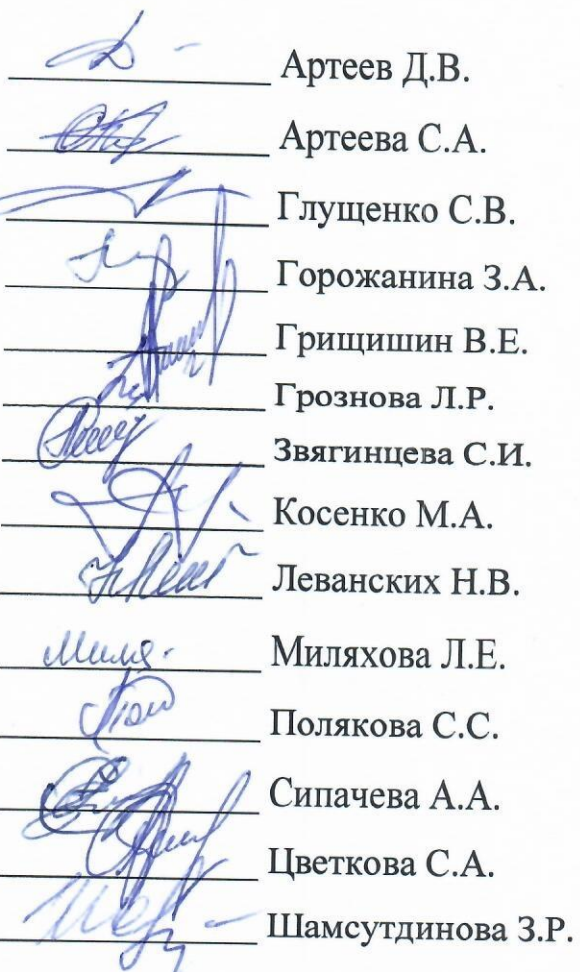 Артеев Д.В.
Артеева С.А.
Глущенко С.В.
Горожанина З.А.
Грищишин В.Е.
Грознова Л.Р.
Звягинцева С.И.
Косенко М.А.
Леванских Н.В.
Миляхова Л.Е.
Полякова С.С.
Сипачева А.А.
Цветкова С.А.
Шамсутдинова З.Р.